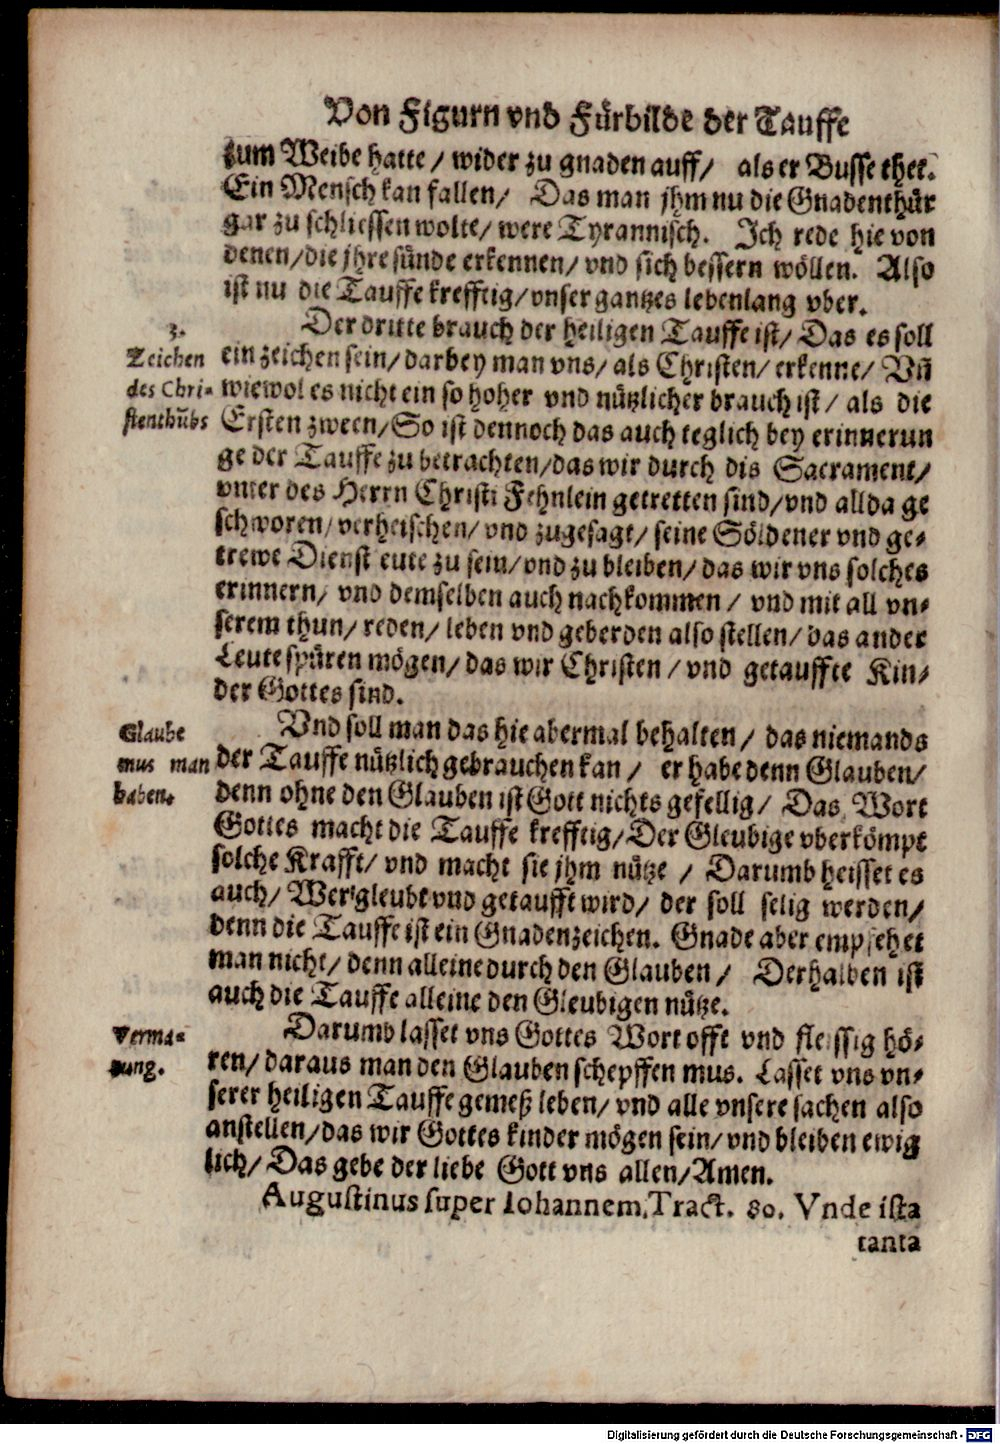 Von Figurn vnd Fürbilde der Tauffe
zum Weibe hatte / wider zu gnaden auff / als er Busse thet.
Ein Mensch kan fallen / Das man jhm nu die Gnadenthür
gar zu schliessen wolte / were Tyrannisch. Ich rede hie von
denen / die jhre sünde erkennen / vnd sich bessern wöllen. Also
ist nu die Tauffe krefftig / vnser gantzes lebenlang vber.
3.
Zeichen
des Chri-
stenthūbs
Der dritte brauch der heiligen Tauffe ist / Das es soll
ein zeichen sein / darbey man vns / als Christen / erkenne / Vñ
wiewol es nicht ein so hoher vnd nützlicher brauch ist / als die
Ersten zween / So ist dennoch das auch teglich bey erinnerun
ge der Tauffe zu betrachten / das wir durch dis Sacrament /
vnter des Herrn Christi Fehnlein getretten sind / vnd allda ge
schworen / verheischen / vnd zugesagt / seine Söldener vnd ge-
trewe Dienst eute zu sein / vnd zu bleiben / das wir vns solches
erinnern / vnd demselben auch nachkommen / vnd mit all vn-
serem thun / reden / leben vnd geberden also stellen / das ander
Leute spüren mögen / das wir Christen / vnd getauffte Kin-
der Gottes sind.
Glaube
mus man
haben.
Vnd soll man das hie abermal behalten / das niemands
der Tauffe nützlich gebrauchen kan / er habe denn Glauben /
denn ohne den Glauben ist Gott nichts gefellig / Das Wort
Gottes macht die Tauffe krefftig / Der Gleubige vberkömpt
solche Krafft / vnd macht sie jhm nütze / Darumb heisset es
auch / Wer gleubt vnd getaufft wird / der soll selig werden /
denn die Tauffe ist ein Gnadenzeichen. Gnade aber empfehet
man nicht / denn alleine durch den Glauben / Derhalben ist
auch die Tauffe alleine den Gleubigen nütze.
Verma-
nung.
Darumb lasset vns Gottes Wort offt vnd fleissig hö-
ren / daraus man den Glauben schepffen mus. Lasset vns vn-
serer heiligen Tauffe gemeß leben / vnd alle vnsere sachen also
anstellen / das wir Gottes kinder mögen sein / vnd bleiben ewig
lich / Das gebe der liebe Gott vns allen / Amen.
Augustinus super Iohannem. Tract. 80. Vnde ista
tanta
Digitalisierung gefördert durch die Deutsche Forschungsgemeinschaft - DFG